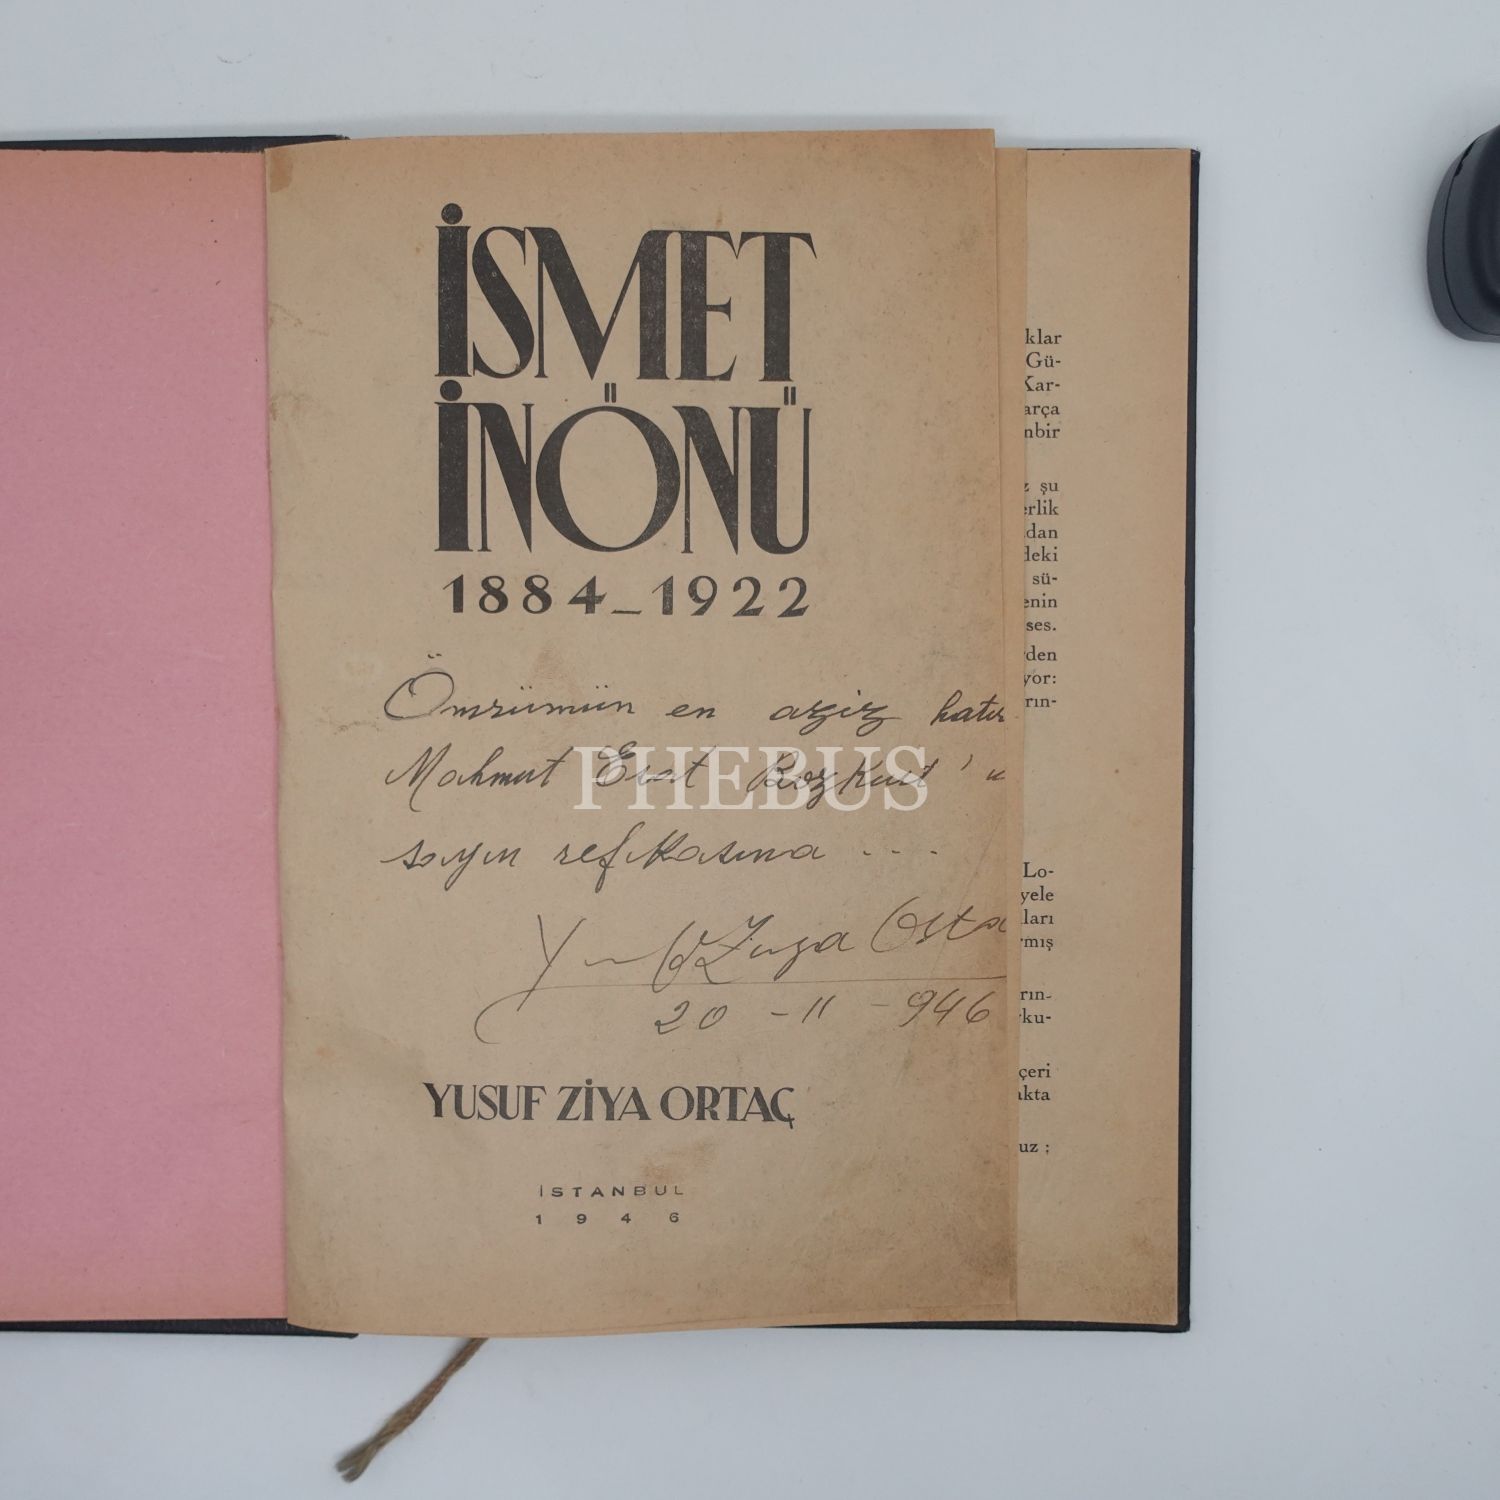 İSMET
İNÖNÜ
1884_1922
Ömrümün en aziz hatır
Mahmut Esat Bozkurt'u
sayın refikasına ....
Yusuf Ziya Orta
20 - 11 - 946
YUSUF ZİYA ORTAÇ
İSTANBUL
1946
PHEBUS
klar
Gü-
Kar-
arça
nbir
z şu
erlik
dan
deki
sü-
enin
ses.
den
yor:
rın-
Lo-
yele
ları
rmış
rın-
ku-
çeri
akta
uz ;